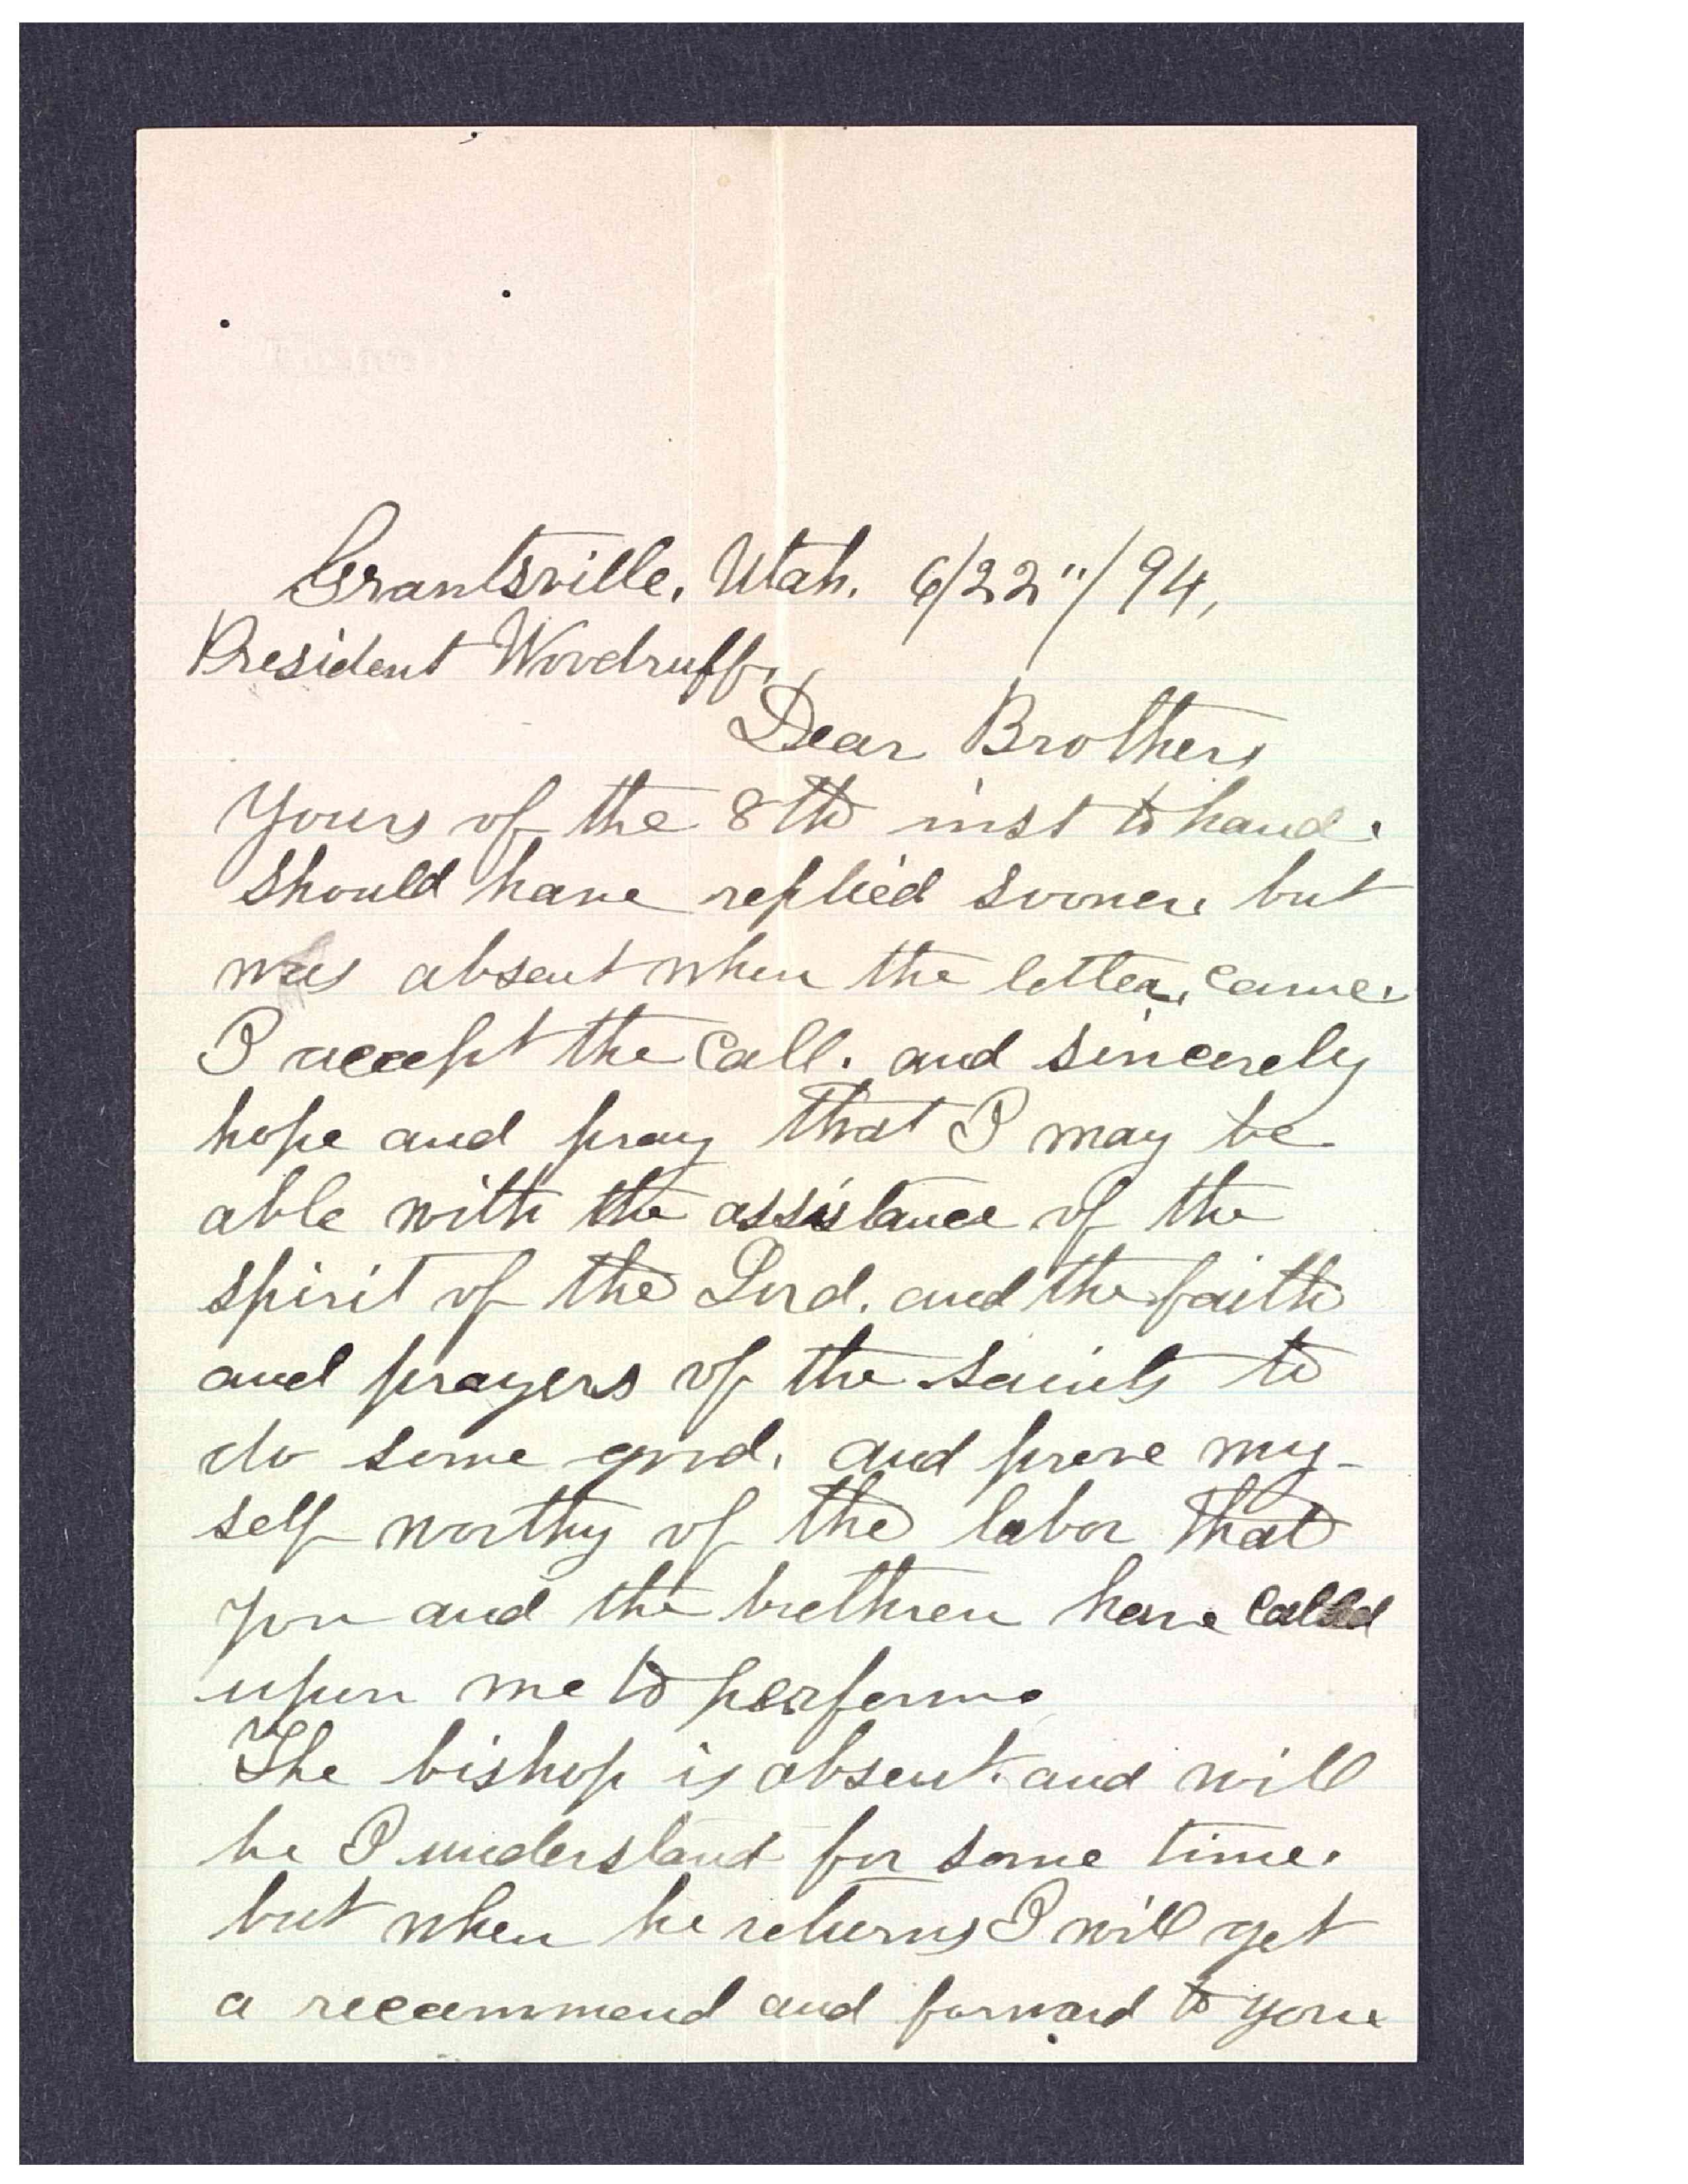 Grantsville. Utah. 6/22"/94,
President Woodruff.
Dear Brother,
Yours of the 8th inst to hand.
Should have replied sooner. but
was absent when the letter. came.
I accept the call. and sincerely
hope and pray that I may be
able with the assistance of the
spirit of the Lord. and the faith
and prayers of the Saints to
do some good. and prove my-
self worthy of the labor that
you and the brethren have called
upon me to perform.
The bishop is absent. and will
be I understand for some time.
but when he returns I will get
a recammend and forward to you.